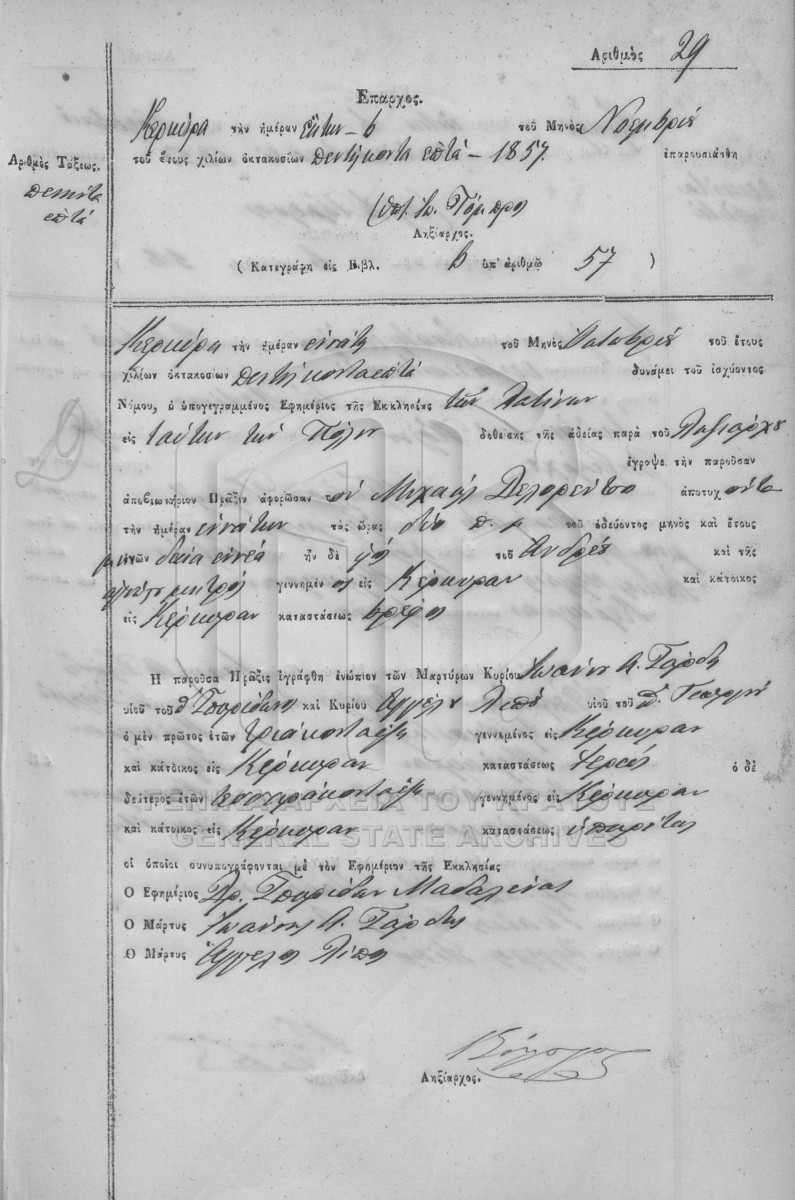 Ἀριθμὸς 29
Ἔπαρχος.
Κερκύρα τὴν ἡμέραν ἕκτην - 6 τοῦ Μηνὸς Νοεμβρίου
τοῦ ἔτους χιλίων ὀκτακοσίων πεντήκοντα ἑπτὰ - 1857. ἐπαρουσιάσθη
Ἀριθμὸς Τάξεως.
πενῆντα
ἑπτά
Ληξίαρχος.
( Κατεγράφη εἰς Βιβλ. 6 ὑπ' ἀριθμῷ 57 )
Κερκύρα τὴν ἡμέραν ἐννάτη τοῦ Μηνὸς Ὀκτωβρίου τοῦ ἔτους
χιλίων ὀκτακοσίων πεντήκονταεπτὰ δυνάμει τοῦ ἰσχύοντος
Νόμου, ὁ ὑπογεγραμμένος Ἐφημέριος τῆς Ἐκκλησίας τῶν Λατίνων
εἰς ταύτην τὴν Πόλιν δοθείσης τῆς ἀδείας παρὰ τοῦ Ληξιάρχου
ἔγραψε τὴν παροῦσαν
ἀποβιωτήριον Πρᾶξιν ἀφορῶσαν τὸν Μιχαὴλ ἀποτυχόντα
τὴν ἡμέραν ἐννάτην τὰς ὥρας δύο π. μ τοῦ ὁδεύοντος μηνὸς καὶ ἔτους
μηνῶν δεκαεννέα ἦν δὲ υἱὸς τοῦ Ἀνδρέου καὶ τῆς
μητρός γεννημένος εἰς Κέρκυραν καὶ κάτοικος
εἰς Κέρκυραν καταστάσεως βρέφος
Ἡ παροῦσα Πρᾶξις ἐγράφθη ἐνώπιον τῶν Μαρτύρων Κυρίου Ἰωάννου Α.
υἱοῦ τοῦ Σπυρίδωνος καὶ Κυρίου Ἀγγέλου υἱοῦ τοῦ Γεωργίου
ὁ μὲν πρῶτος ἐτῶν τριάκονταέξ γεννημένος εἰς Κέρκυραν
καὶ κάτοικος εἰς Κέρκυραν καταστάσεως ἱερεύς ὁ δὲ
δεύτερος ἐτῶν τεσσαράκονταέξ γεννημένος εἰς Κέρκυραν
καὶ κάτοικος εἰς Κέρκυραν καταστάσεως ὑπηρέτης
οἱ ὁποῖοι συνυπογράφονται μὲ τὸν Ἐφημέριον τῆς Ἐκκλησίας
Ὁ Ἐφημέριος Σπυρίδων
Ὁ Μάρτυς Ἰωάννης Α.
Ὁ Μάρτυς Ἄγγελος
Ληξίαρχος.
ΓΕΝΙΚΑ ΑΡΧΕΙΑ ΤΟΥ ΚΡΑΤΟΥΣ
GENERAL STATE ARCHIVES